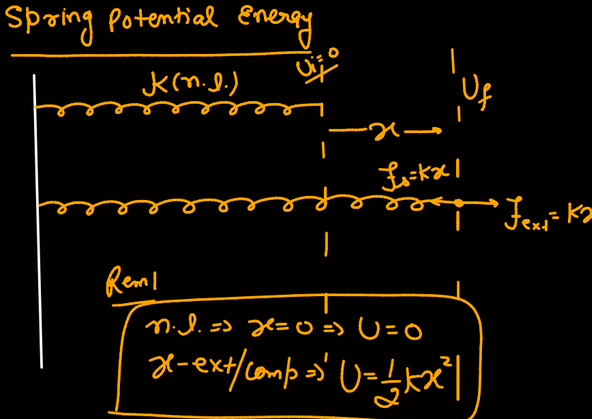 Spring Potential Energy
Ui=0
K(n.l.)
Uf
x
fs=Kx
fext=Kx
Rem|
n.l. => x=0 => U=0
x-ext/comp => U=1/2 kx²